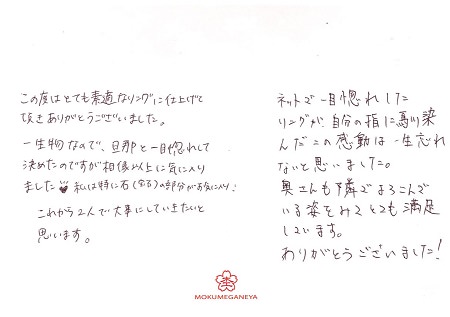 この度はとても素適なリングに仕上げて
頂きありがとうございました。
一生物なので、旦那と一目惚れして
決めたのですが想像以上に気に入り
ました 私は特に石(宝石)の部分がお気に入り!
これから2人で大事にしていきたいと
思います。
ネットで一目惚れした
リングが、自分の指に馴染
んだこの感動は一生忘れ
ないと思いました。
奥さんも隣でよろこんで
いる姿をみてとても満足
しています。
ありがとうございました!
MOKUMEGANEYA